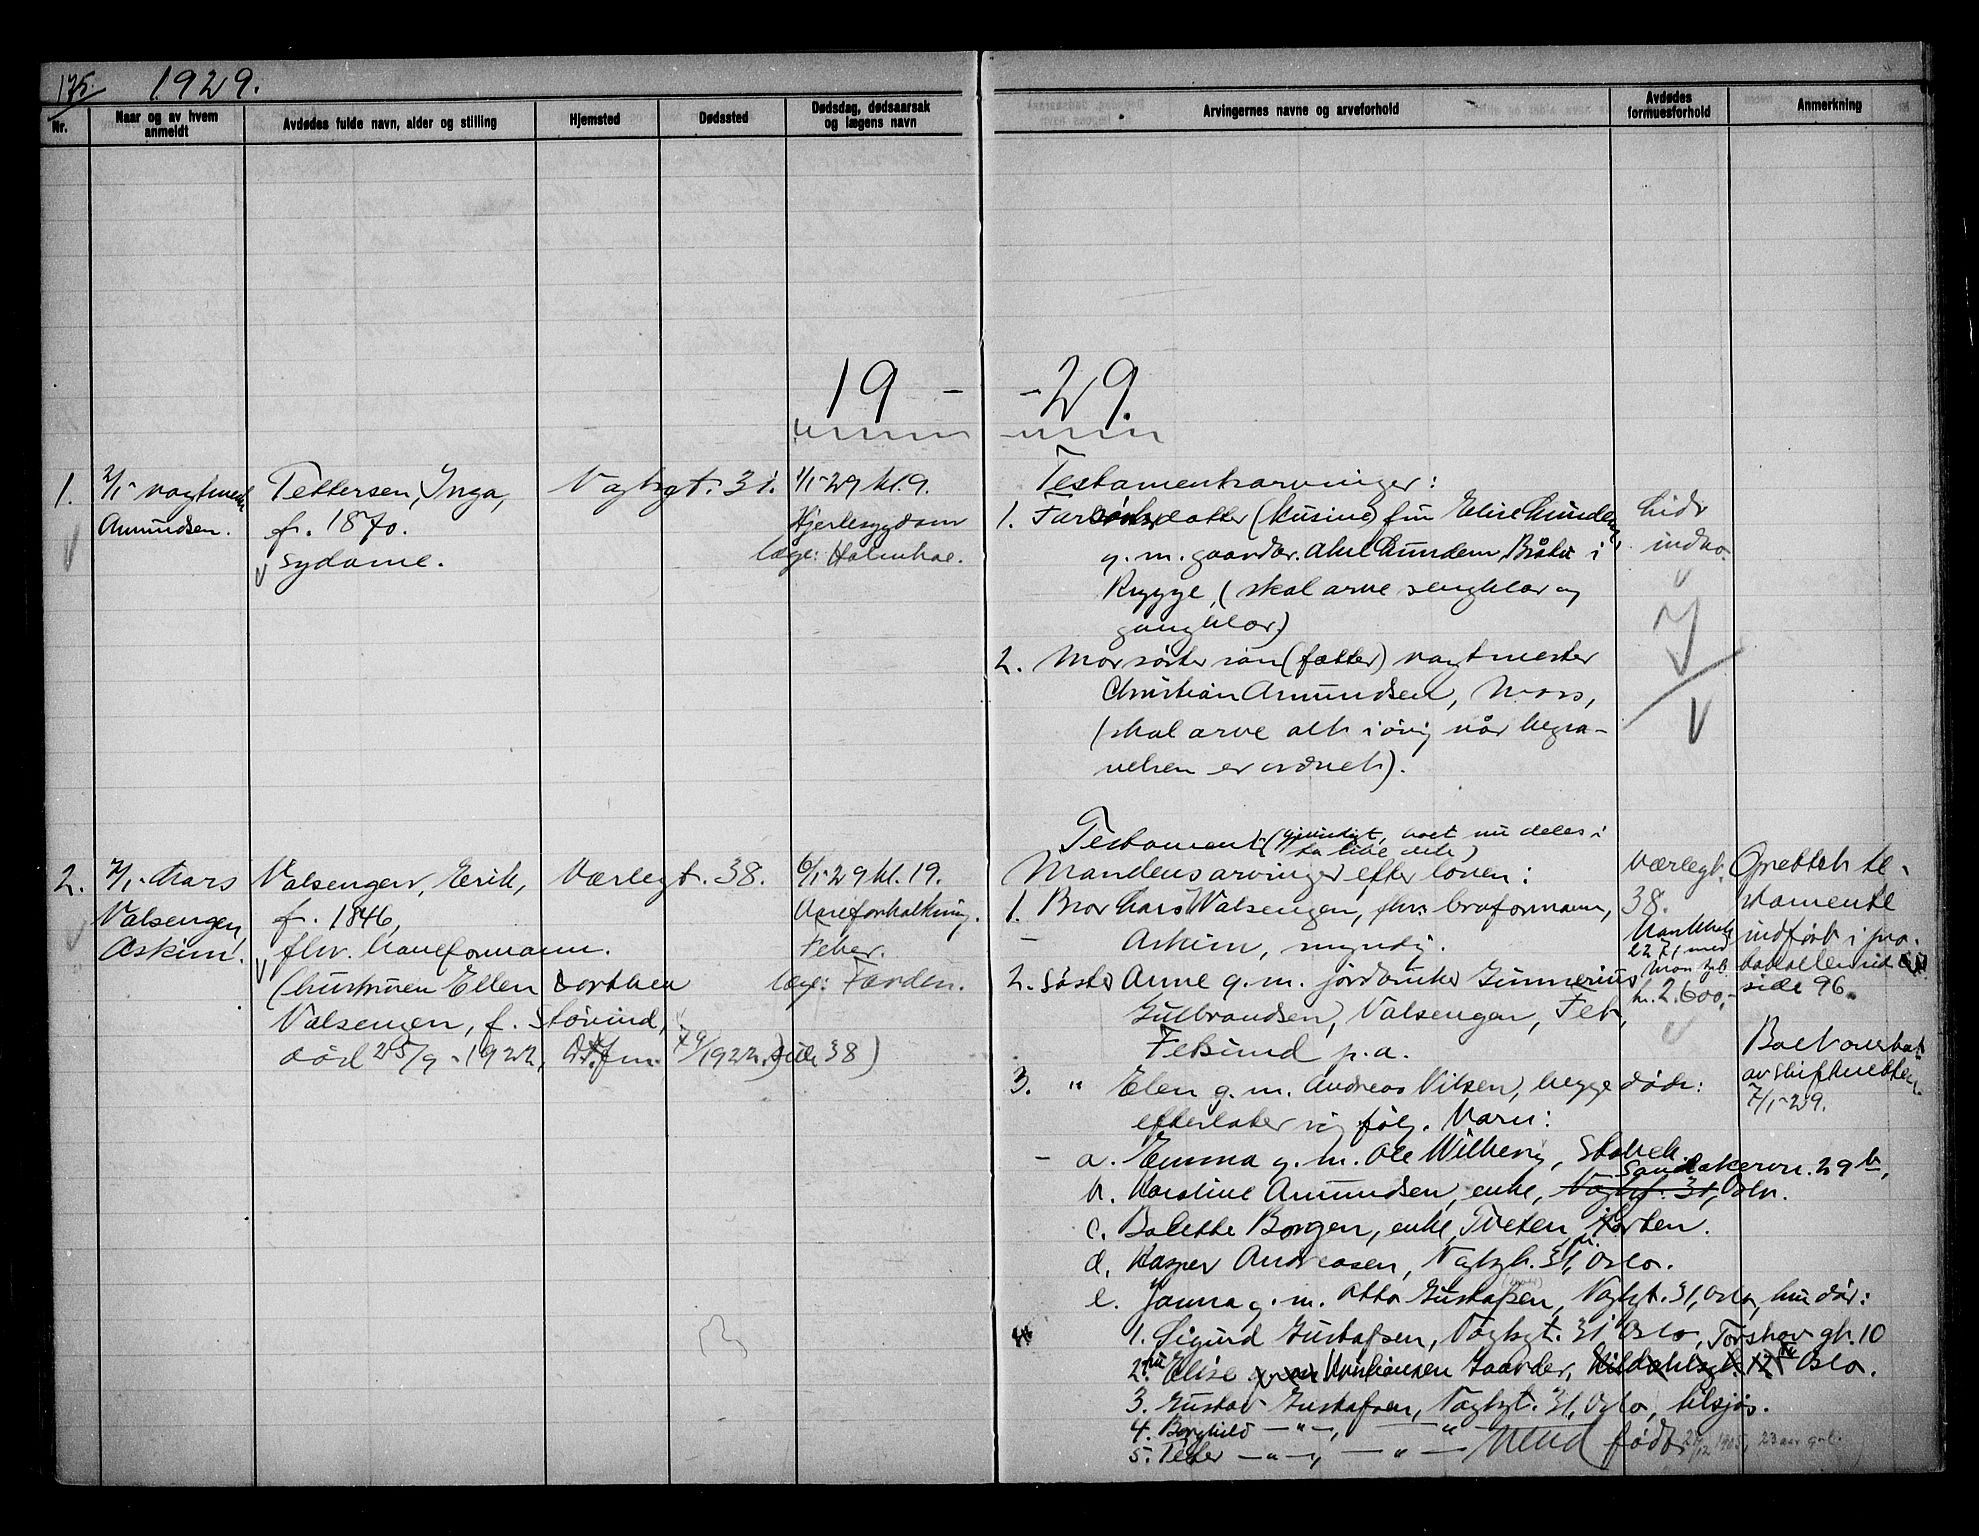 175. 1929.
Nr.
Naar og av hvem anmeldt
Avdødes fulde navn, alder og stilling
Hjemsted
Dødssted
Dødsdag, dødsaarsak og lægens navn
Arvingernes navne og arveforhold
Avdødes formuesforhold
Anmerkning
19 - - 29.
1.
2/1- vagtmester
Amundsen.
Pettersen, Inga,
f. 1870.
sydame.
Vogtsgt. 31.
1/1-29 kl. 9.
Hjertesygdom
læge: Holmboe.
Testamentsarvinger:
1. datter (kusine) fru Elise
g. m. gaardbr. i
Rygge, (skal arve sengklær og
gangklær.)
2. Morsøsters søn (fætter) vagtmester
Christian Amundsen, Moss,
(skal arve alt iøvrig når begra-
velsen er ordnet).
Lidt
indbo.
2.
7/1- Lars
Valsengen,
Askim.
Valsengen, Erik,
f. 1846,
fhv.
(hustruen Ellen Dorthea
Valsengen, f. Støvind,
død 25/9-1922, /1922. side 38)
Værlegt. 38.
6/1-29 kl. 19.
Aareforkalkning.
Feber.
læge: Farden.
Testament: (gjensidigt, boet nu deles i
to like dele,)
Mandens arvinger efter loven:
1. Bror Lars Valsengen, fhv. broformann,
Askim, myndig.
2. Søster Anne g. m. jordbruker Gunnerius
Gulbrandsen, Valsengen, Fet,
Fetsund p. a.
3. " Elen g. m. Andreas Nilsen, begge døde:
efterlater sig følg. barn:
a. Emma g. m. Ole Wilberg, Stabek.
Sandakervn. 29 b,
b. Karoline Amundsen, enke, Vogtsgt. 31, Oslo.
c. Bolette Borgen, enke, Tveten, Horten.
d. Kasper Andreasen, Vogtsgt. 31, Oslo.
e. Janna g. m. Otto Gustafsen, Vogtsgt. 31, Oslo, hun død:
1. Sigurd Gustafsen, Vogtsgt. 31 Oslo, Torshov gt. 10
2. fru Elise Kristiansen Gaarder, Oslo.
3. Gustav Gustafsen, Vogtsgt. 31, Oslo, tilsjøs.
4. Borghild —"—, —"—
5. Peter —"—, —"— født /12 1905, 23 aar gl.
Værlegt.
38.
kr. 2.600,-
Oprettet te-
stamente
indført i pro-
tokollen
side 96.
Boet overtat
av skifteretten
7/1-29.